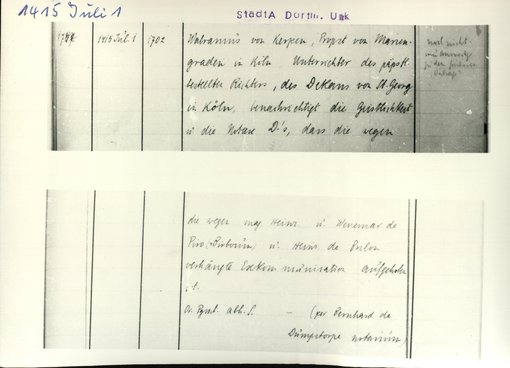 1415 Juli 1
StadtA Dortm. Urk
1415 Juli 1
1702
Walramus von Kerpen, Propst von Marien-
graden in Köln, Unterrichter des päpstl.
bestellten Richters, des Dekans von St. Georg
in Köln, benachrichtigt die Geistlichkeit
u. die Notare D's, dass die wegen
noch nicht
die wegen mag. Heinr. u. Wenemar de
Piro u. Heinr. de
verhängte Exkommunikation aufgehoben
ist.
Or. Pgmt. abh. S. — (per Bernhard de
Dümpstorpe notarium)